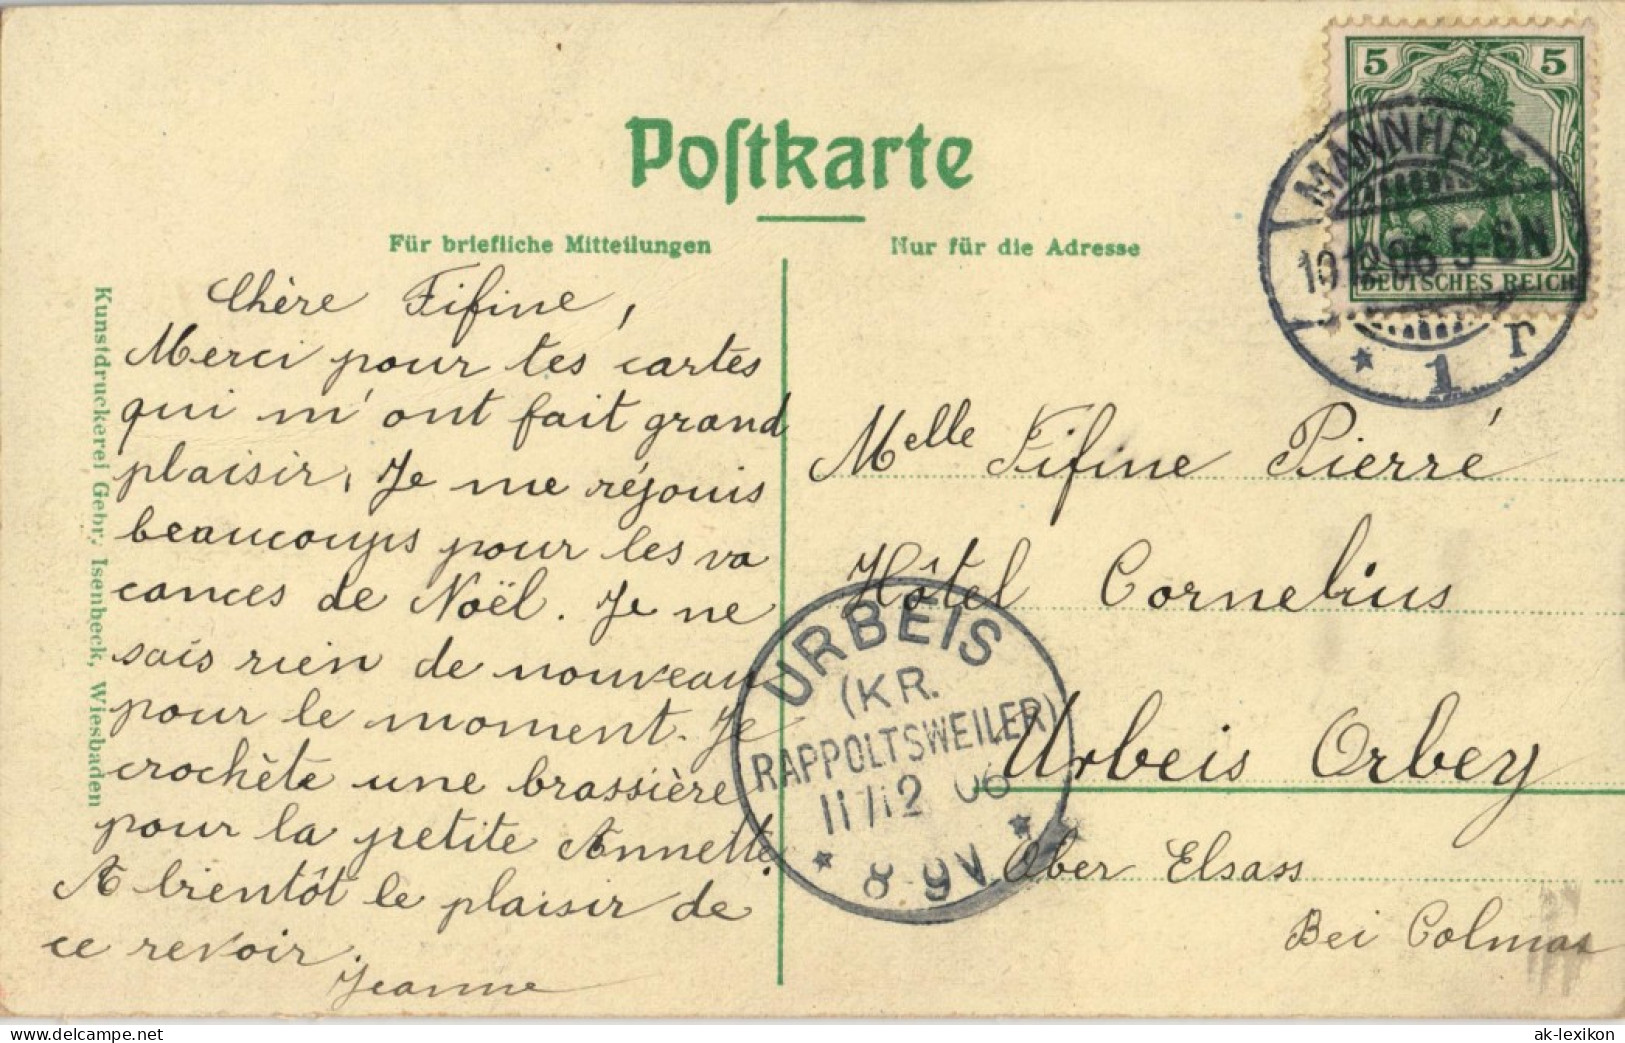 Postkarte
Für briefliche Mitteilungen
Nur für die Adresse
5 5
DEUTSCHES REICH
MANNHEIM
10.12.06 5-6N
* 1 r
Chère Fifine,
Merci pour tes cartes
qui m'ont fait grand
plaisir. Je me réjouis
beaucoups pour les va
cances de Noël. Je ne
sais rien de nouveau
pour le moment. Je
crochète une brassière
pour la petite Annette.
A bientôt le plaisir de
ce revoir.
Jeanne
Melle Fifine Pierré
Hôtel Cornelius
Urbeis Orbey
Ober Elsass
Bei Colmar
URBEIS
(KR.
RAPPOLTSWEILER)
11/12 06
* 8-9V *
Kunstdruckerei Gebr. Isenbeck, Wiesbaden
www.delcampe.net
ak-lexikon